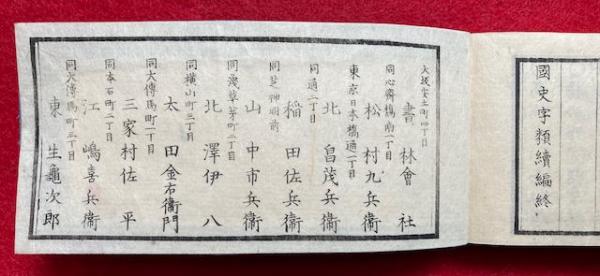 國史字類續編終
大坂安土町四丁目
書林會社
同心齋橋南一丁目
松村九兵衞
東京日本橋通一丁目
北畠茂兵衞
同通二丁目
稲田佐兵衞
同芝神明前
山中市兵衞
同淺草茅町二丁目
北澤伊八
同横山町三丁目
太田金右衞門
同大傳馬町一丁目
三家村佐平
同本石町二丁目
江嶋喜兵衞
同大傳馬町三丁目
東生龜次郎